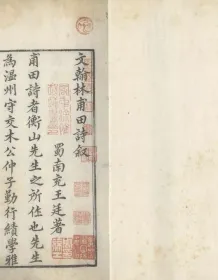 文翰林甫田詩敘
蜀南充王廷著
甫田詩者衡山先生之所作也先生
為温州守交木公仲子勤行績學雅